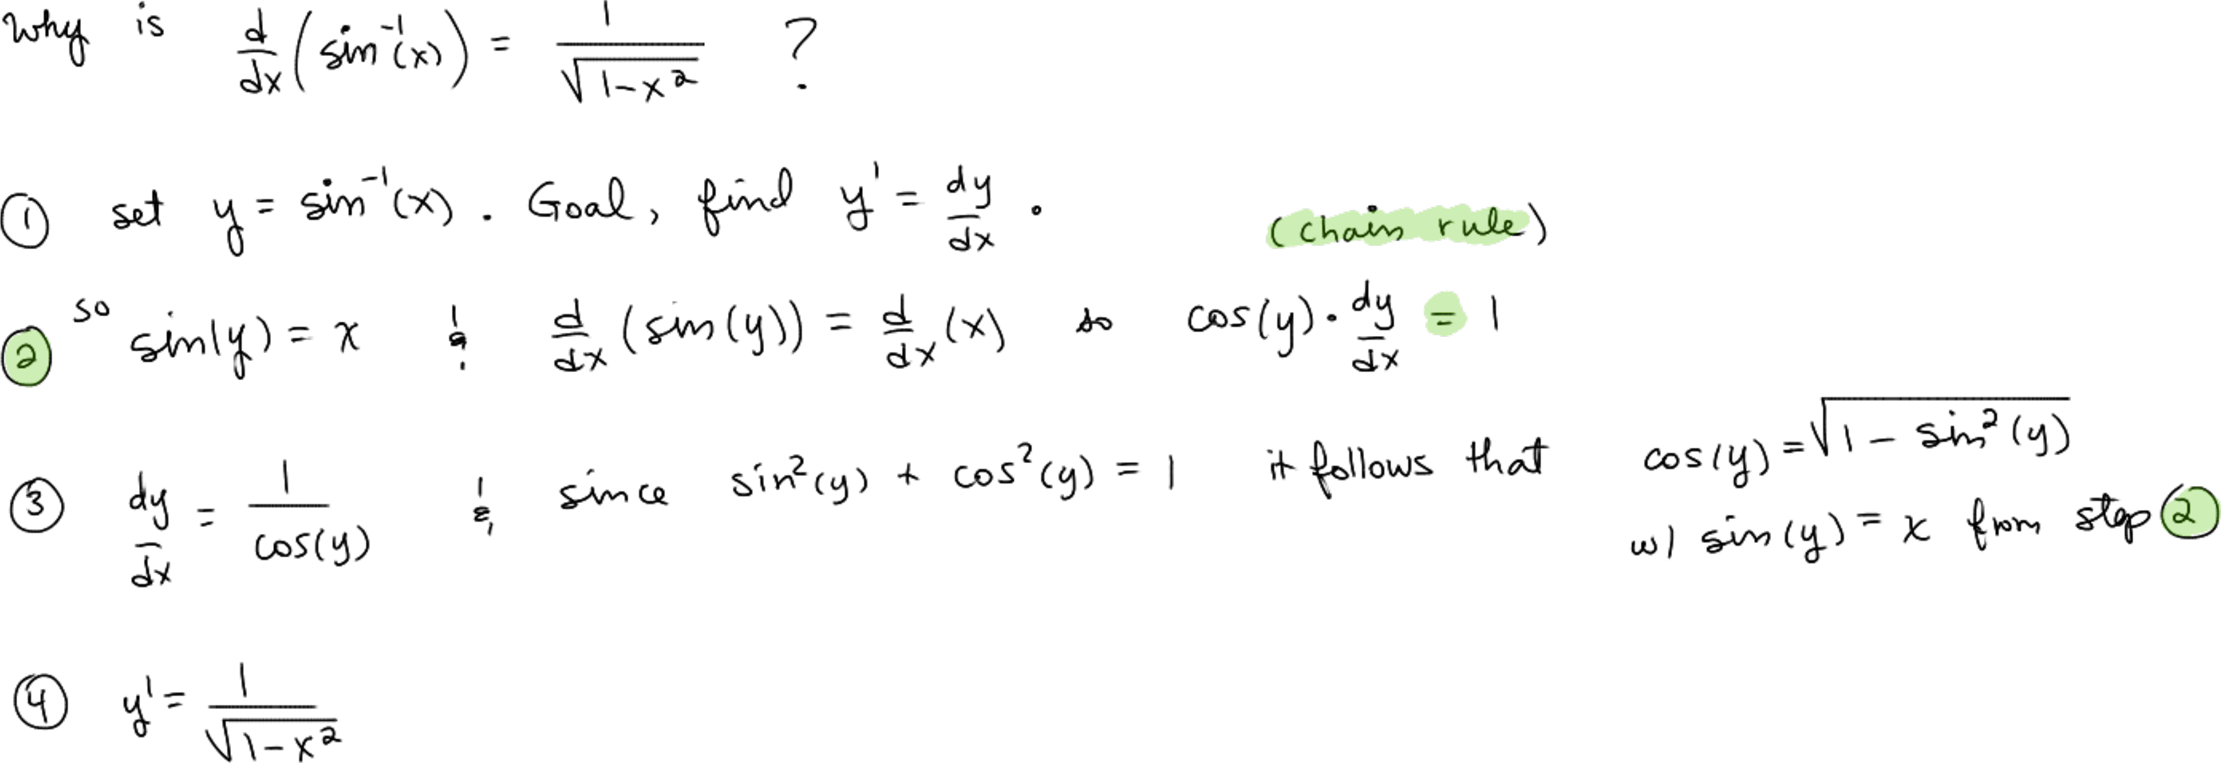 Why is d/dx (sin⁻¹(x)) = 1/√(1-x²) ?
① set y = sin⁻¹(x). Goal, find y' = dy/dx.
(chain rule)
② so sin(y) = x & d/dx (sin(y)) = d/dx (x) so cos(y)·dy/dx = 1
③ dy/dx = 1/cos(y) & since sin²(y) + cos²(y) = 1 it follows that cos(y) = √(1 - sin²(y))
w/ sin(y) = x from step ②
④ y' = 1/√(1-x²)